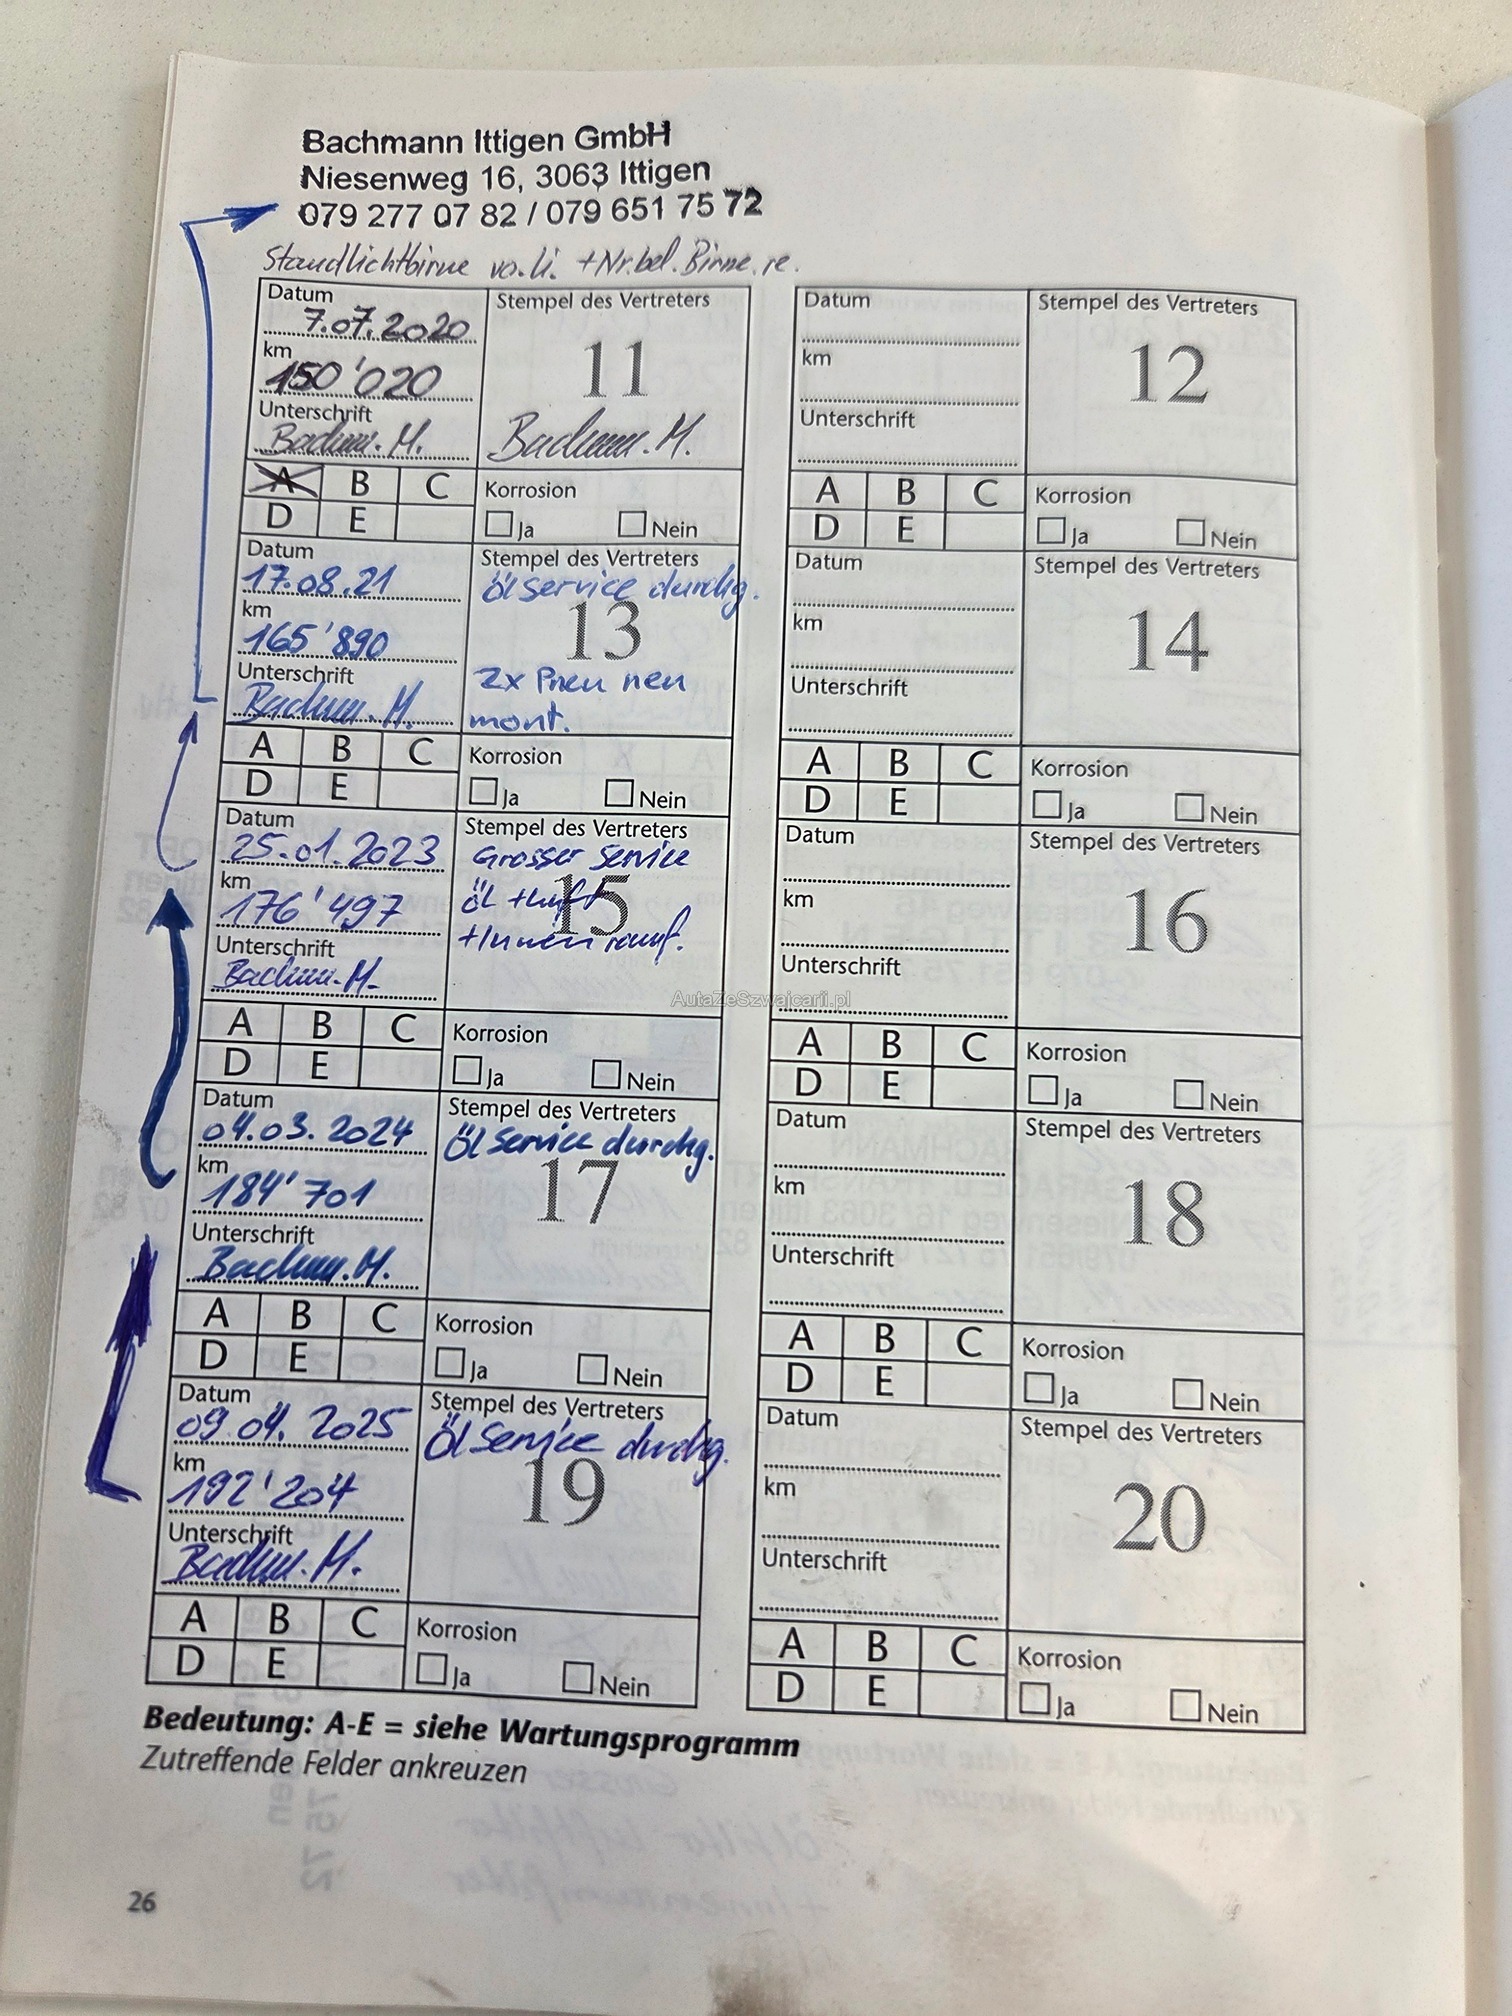 Bachmann Ittigen GmbH
Niesenweg 16, 3063 Ittigen
079 277 07 82 / 079 651 75 72
Standlichtbirne vo.li. + Nr.bel. Birne.re.
Datum
7.07.2020
km
150'020
Unterschrift
Bachm. M.
Stempel des Vertreters
11
Bachm. M.
A B C
D E
Korrosion
Ja Nein
Datum
km
Unterschrift
Stempel des Vertreters
12
A B C
D E
Korrosion
Ja Nein
Datum
17.08.21
km
165'890
Unterschrift
Bachm. M.
Stempel des Vertreters
Ölservice durchg.
13
2x Pneu neu
mont.
A B C
D E
Korrosion
Ja Nein
Datum
km
Unterschrift
Stempel des Vertreters
14
A B C
D E
Korrosion
Ja Nein
Datum
25.01.2023
km
176'497
Unterschrift
Bachm. M.
Stempel des Vertreters
Grosser Service
Öl + Luft
15
+ Innenraumf.
A B C
D E
Korrosion
Ja Nein
Datum
km
Unterschrift
Stempel des Vertreters
16
A B C
D E
Korrosion
Ja Nein
AutaZeSzwajcarii.pl
Datum
04.03.2024
km
184'701
Unterschrift
Bachm. M.
Stempel des Vertreters
Öl Service durchg.
17
A B C
D E
Korrosion
Ja Nein
Datum
km
Unterschrift
Stempel des Vertreters
18
A B C
D E
Korrosion
Ja Nein
Datum
09.04.2025
km
192'204
Unterschrift
Bachm. M.
Stempel des Vertreters
Öl Service durchg.
19
A B C
D E
Korrosion
Ja Nein
Datum
km
Unterschrift
Stempel des Vertreters
20
A B C
D E
Korrosion
Ja Nein
Bedeutung: A-E = siehe Wartungsprogramm
Zutreffende Felder ankreuzen
26